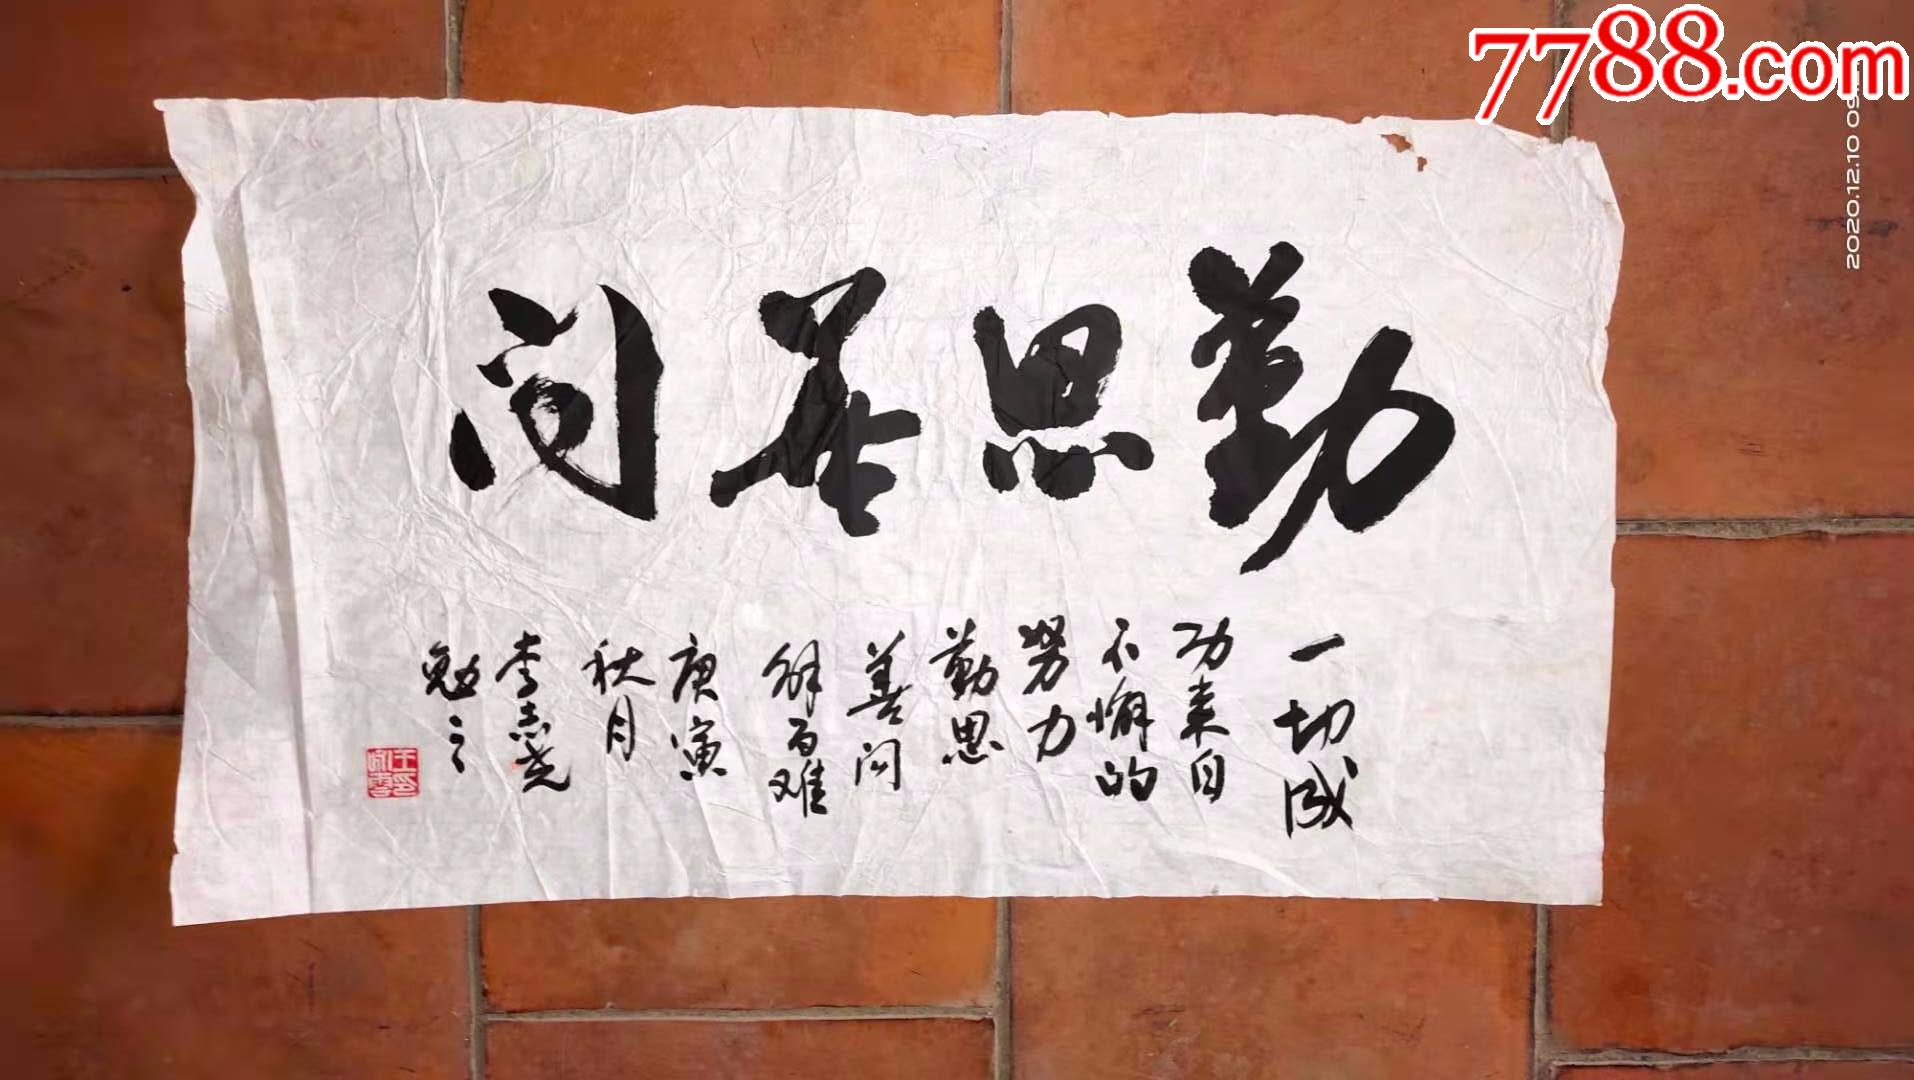 勤思善问
一切成
功来自
不懈的
努力
勤思
善问
解百难
庚寅
秋月
李志尧
勉之
7788.com
2020.12.10 09